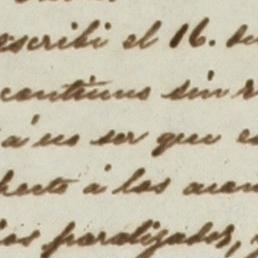 escribi el 16. de
continuo sin
á no ser que es
á los acon
los paralizados,